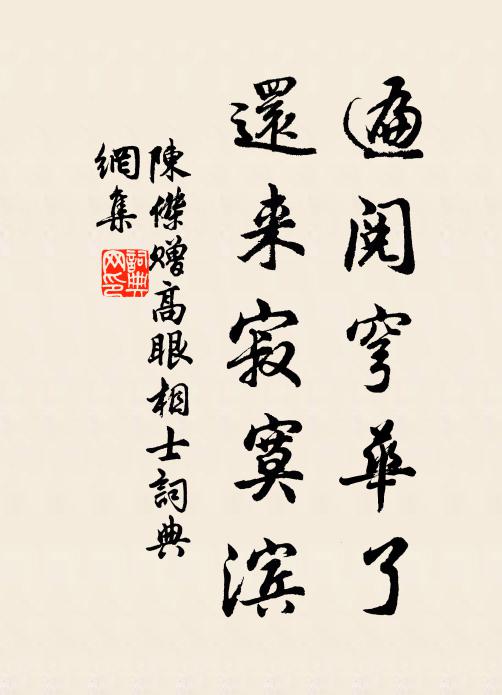 遍阅穹華了
還来寂寞滨
陳傑贈高眼相士詞典
網集
詞典网印